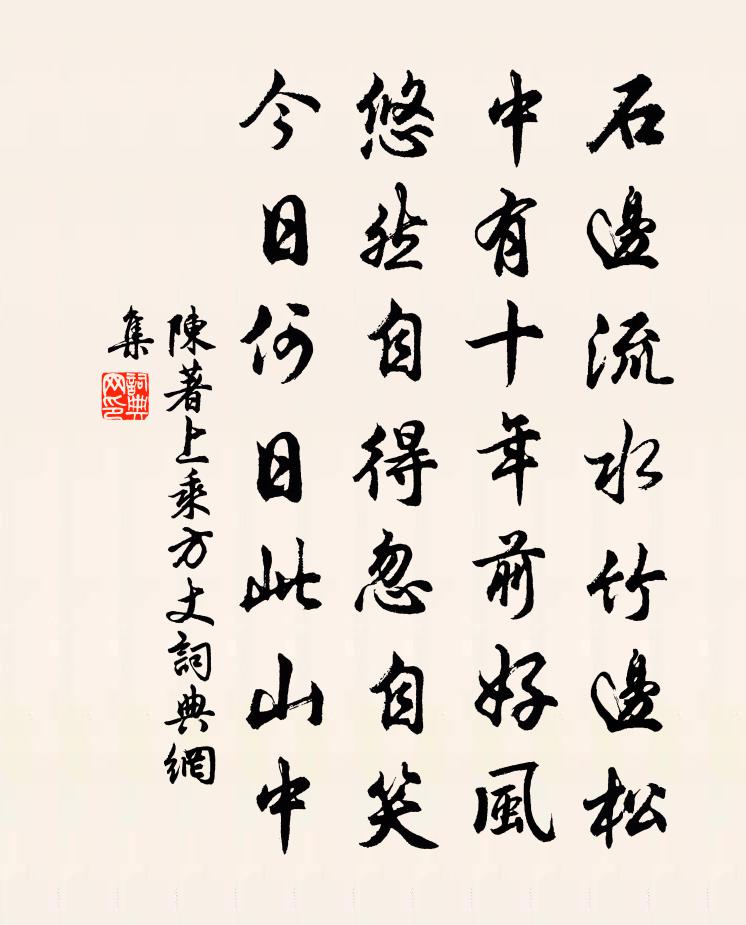 石邊流水竹邊松
中有十年前好風
悠然自得忽自笑
今日何日此山中
陳著上乘方丈詞典網
集
詞典
网印